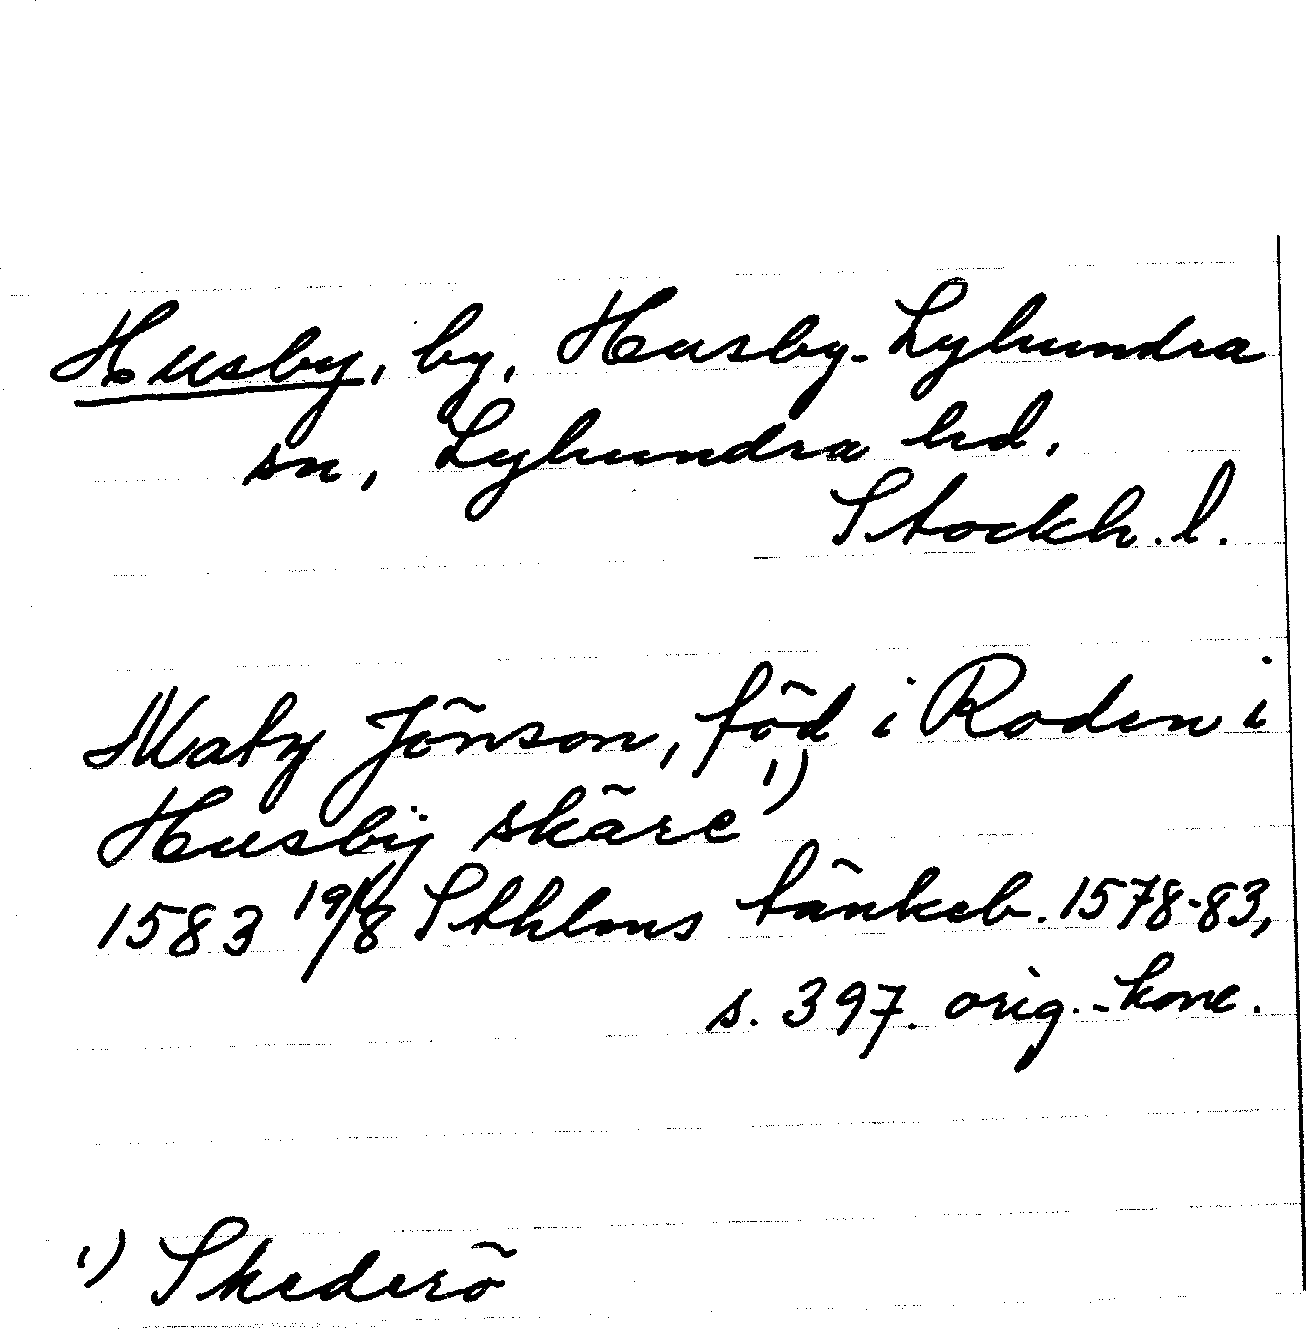 Husby, by, Husby-Lyhundra
sn, Lyhundra hd,
Stockh. l.
Maty Jönson, föd i Roden i
Husbÿ skäre ¹)
1583 19/8 Sthlms tänkeb. 1578-83,
s. 397. orig.-konc.
¹) Skederö